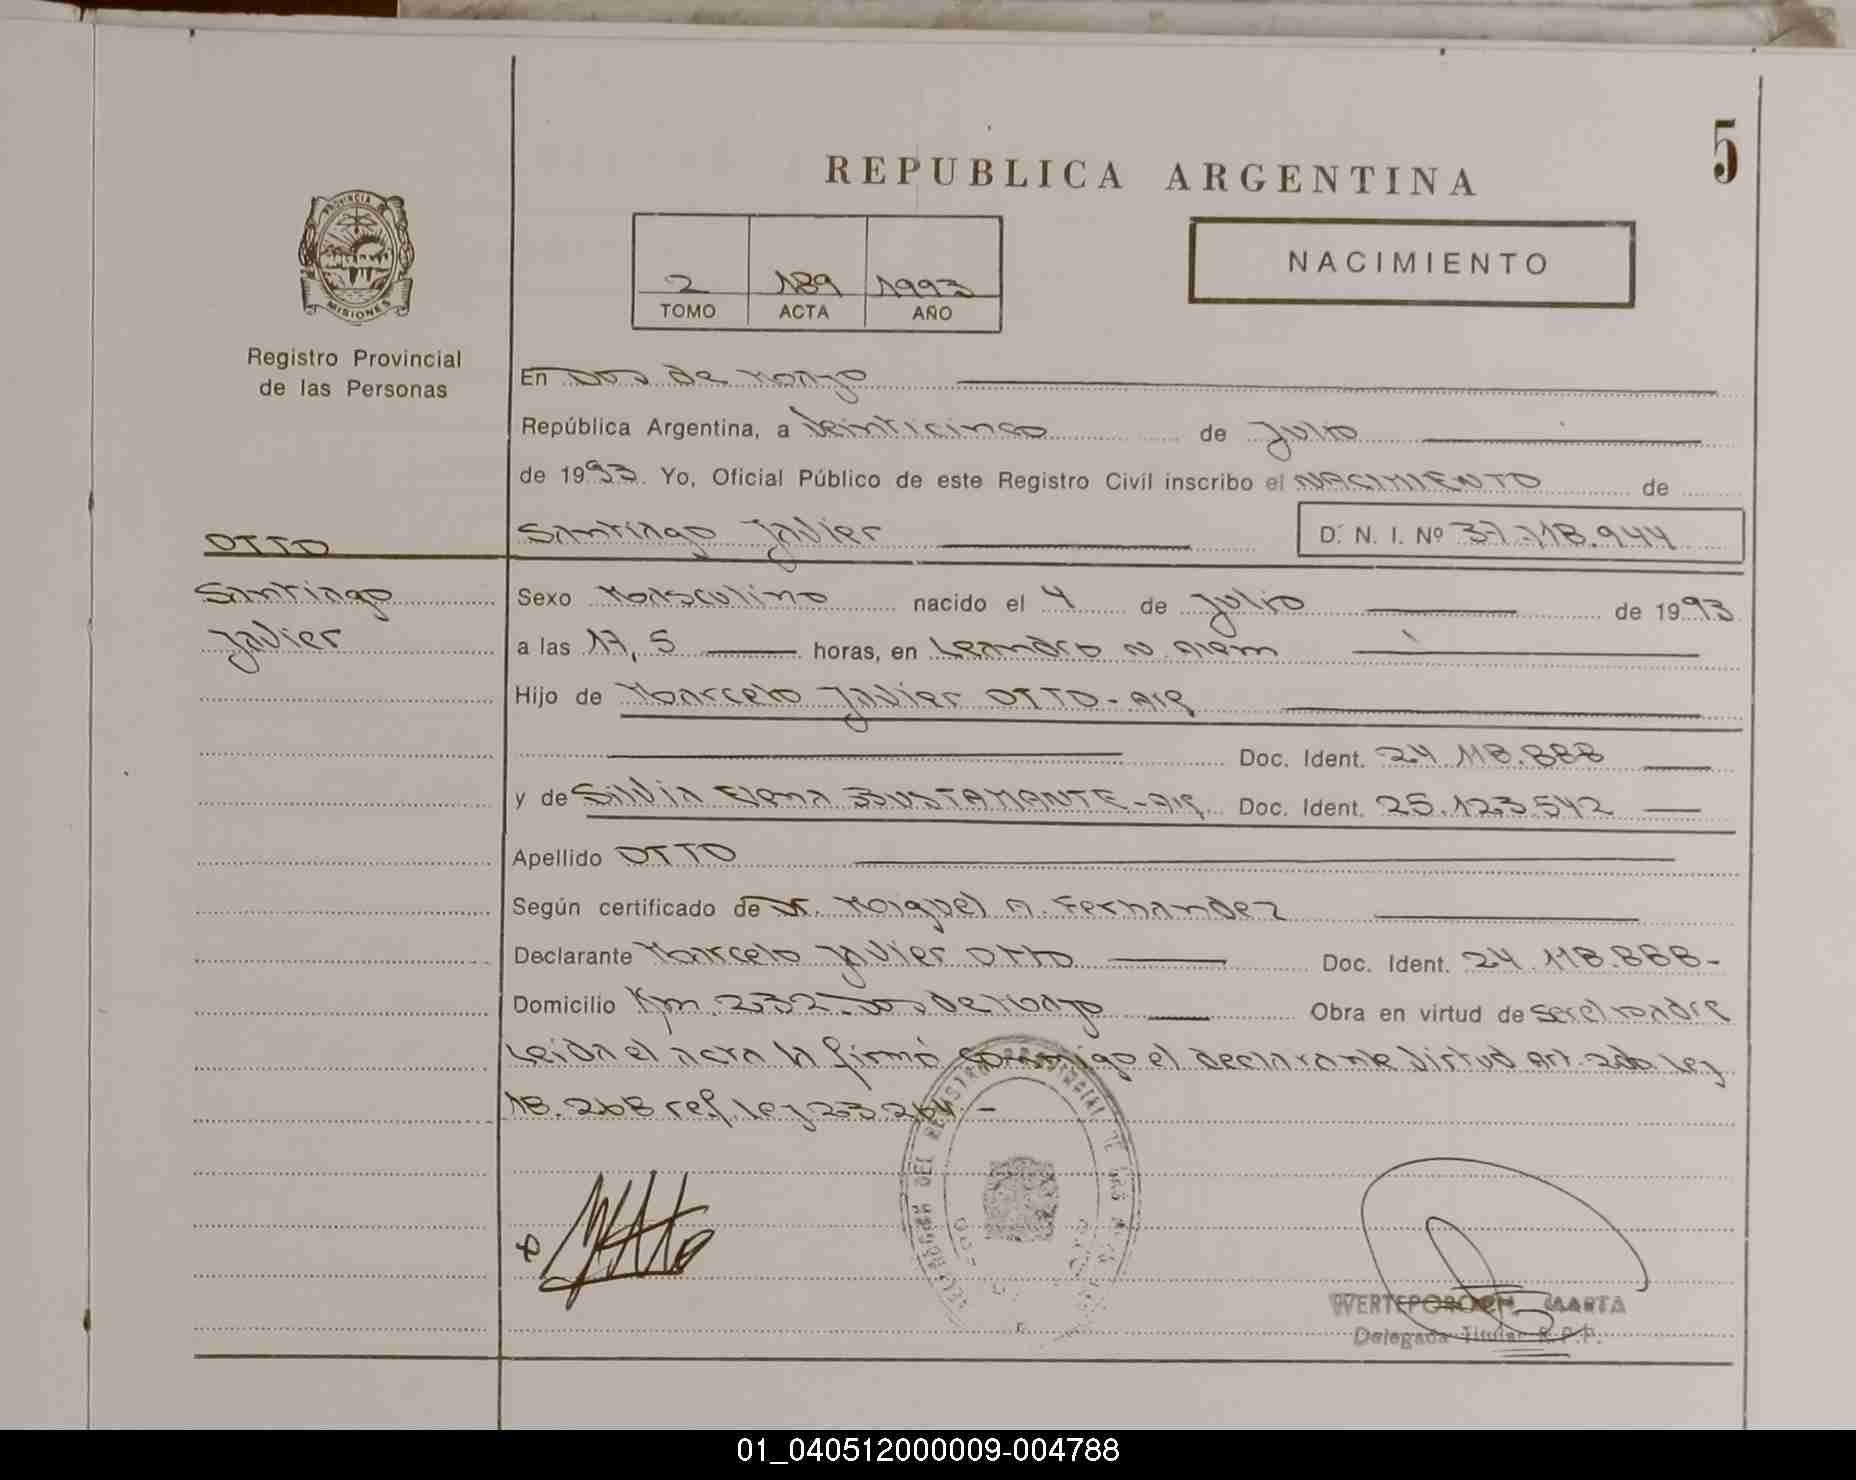 5
REPUBLICA ARGENTINA
PROVINCIA DE
MISIONES
NACIMIENTO
2 189 1993
TOMO ACTA AÑO
Registro Provincial
de las Personas
En Dos de Mayo
República Argentina, a Veinticinco de Julio
de 1993. Yo, Oficial Público de este Registro Civil inscribo el NACIMIENTO de
OTTO
Santiago Javier D. N. I. Nº 37.718.944
Santiago
Javier
Sexo Masculino nacido el 4 de Julio de 1993
a las 17,5 horas, en Leandro N Alem
Hijo de Marcelo Javier OTTO-Arg
Doc. Ident. 24.118.888
y de Silvia Elena BUSTAMANTE-Arg Doc. Ident. 25.123.542
Apellido OTTO
Según certificado de Dr. Miguel A. Fernandez
Declarante Marcelo Javier Otto Doc. Ident. 24.118.888-
Domicilio Km. 232 Dos de Mayo Obra en virtud de ser el padre
Leida el acta la firmó conmigo el declarante Virtud Art. 2do Ley
18.268 ref. Ley 23.264.-
DEL REGISTRO PROVINCIAL DE LAS
WERTEPOROCH MARTA
Delegada Titular R.P.P.
01_040512000009-004788